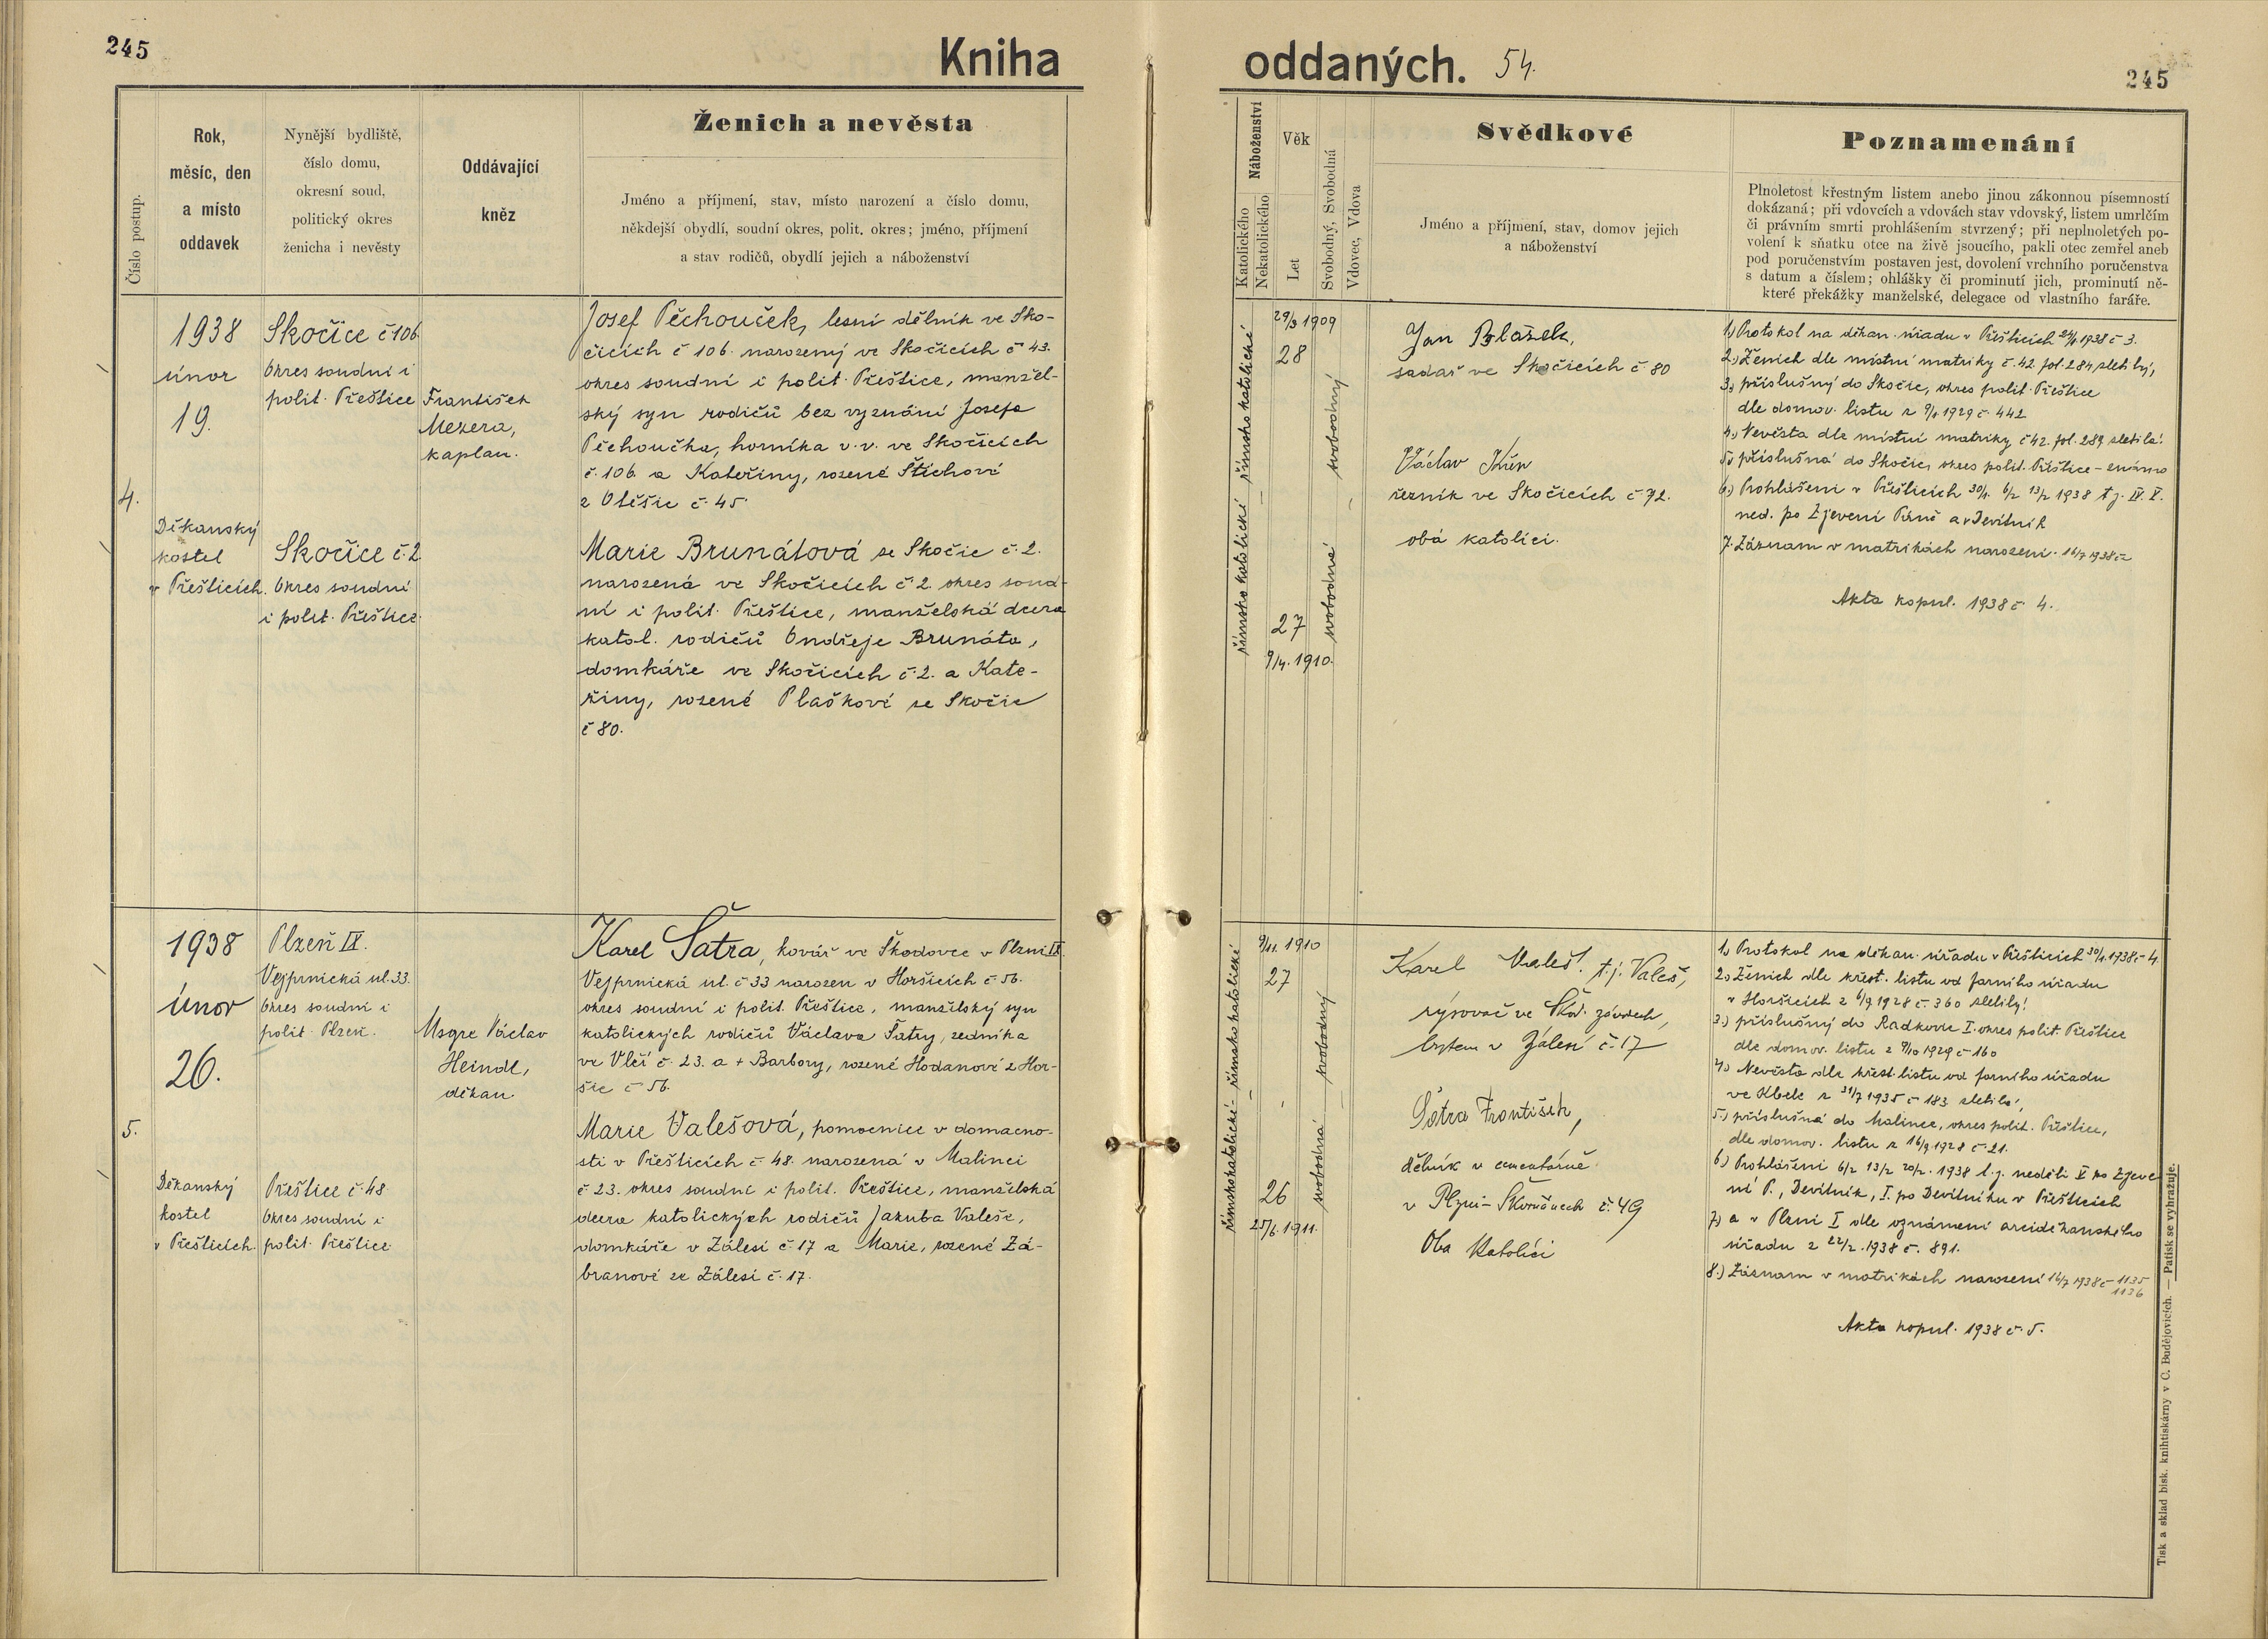 245
Kniha
oddaných.
54.
245
Číslo postup.
Rok,
měsíc, den
a místo
oddavek
Nynější bydliště,
číslo domu,
okresní soud,
politický okres
ženicha i nevěsty
Oddávající
kněz
Ženich a nevěsta
Jméno a příjmení, stav, místo narození a číslo domu,
někdejší obydlí, soudní okres, polit. okres; jméno, příjmení
a stav rodičů, obydlí jejich a náboženství
Náboženství
Katolického
Nekatolického
Věk
Let
Svobodný, Svobodná
Vdovec, Vdova
Svědkové
Jméno a příjmení, stav, domov jejich
a náboženství
Poznamenání
Plnoletost křestným listem anebo jinou zákonnou písemností
dokázaná; při vdovcích a vdovách stav vdovský, listem umrlčím
či právním smrti prohlášením stvrzený; při neplnoletých po-
volení k sňatku otce na živě jsoucího, pakli otec zemřel aneb
pod poručenstvím postaven jest, dovolení vrchního poručenstva
s datum a číslem; ohlášky či prominutí jich, prominutí ně-
které překážky manželské, delegace od vlastního faráře.
4.
1938
únor
19.
Děkanský
kostel
v Přešticích.
Skočice č 106.
Okres soudní i
polit. Přeštice
Skočice č. 2
Okres soudní
i polit. Přeštice.
František
Mezera,
kaplan.
Josef Pěchouček, lesní dělník ve Sko-
čicích č 106. narozený ve Skočicích č 43.
okres soudní i polit. Přeštice, manžel-
ský syn rodičů bez vyznání Josefa
Pěchoučka, horníka v.v. ve Skočicích
č. 106 a Kateřiny, rozené Štichové
z Otěšic č. 45.
Marie Brunátová ze Skočic č. 2.
narozená ve Skočicích č. 2. okres soud-
ní i polit. Přeštice, manželská dcera
katol. rodičů Ondřeje Brunáta,
domkáře ve Skočicích č. 2. a Kate-
řiny, rozené Plaškové ze Skočic
č 80.
římsko katolické
římsko katolické
29/3 1909
28
27
9/4. 1910.
svobodný
svobodná
Jan Blažek,
sadař ve Skočicích č 80
Václav Křen
řezník ve Skočicích č 72.
obá katolíci.
1.) Protokol na děkan. úřadu v Přešticích 24/1 1938 č 3.
2.) Ženich dle místní matriky č. 42. fol. 284 zletilý,
3.) příslušný do Skočic, okres polit. Přeštice
dle domov. listu z 9/1 1929 č. 442
4.) Nevěsta dle místní matriky č 42. fol. 289 zletilá.
5.) příslušná do Skočic, okres polit. Přeštice – známo
6.) Prohlášení v Přešticích 30/1. 6/2 13/2 1938 t.j. IV. V.
ned. po Zjevení Páně a v Devítník
7. Záznam v matrikách narození. 16/7 1938 č
Akta kopul. 1938 č. 4.
5.
1938
únor
26.
Děkanský
kostel
v Přešticích.
Plzeň IX.
Vejprnická ul. 33.
Okres soudní i
polit. Plzeň.
Přeštice č. 48
Okres soudní i
polit. Přeštice
Msgre Václav
Heindl,
děkan.
Karel Šatra, kovář ve Škodovce v Plzni IX.
Vejprnická ul. č 33 narozen v Horšicích č 56.
okres soudní i polit. Přeštice, manželský syn
katolických rodičů Václava Šatry, zedníka
ve Vlčí č. 23. a + Barbory, rozené Hodanové z Hor-
šic č 56.
Marie Valešová, pomocnice v domácno-
sti v Přešticích č. 48. narozená v Malinci
č 23. okres soudní i polit. Přeštice, manželská
dcera katolických rodičů Jakuba Valeše,
domkáře v Zálesí č. 17 a Marie, rozené Zá-
branové ze Zálesí č. 17.
římskokatolické
římskokatolické
9/11. 1910
27
26
25/6. 1911.
svobodný
svobodná
Karel Valeš. t.j. Valeš,
rýsovač ve Škod. závodech,
bytem v Zálesí č. 17
Šatra František,
dělník v cementárně
v Plzni-Skvrňanech č. 49
Oba Katolíci
1.) Protokol na děkan. úřadu v Přešticích 30/1. 1938 č 4.
2.) Ženich dle křest. listu od farního úřadu
v Horšicích z 6/9 1928 č. 360 zletilý!
3.) příslušný do Radkovic I. okres polit. Přeštice
dle domov. listu z 9/10 1929 č 160
4.) Nevěsta dle křest. listu od farního úřadu
ve Kbele z 31/7 1935 č 183 zletilá,
5.) příslušná do Malince, okres polit. Přeštice,
dle domov. listu z 16/9 1928 č. 21.
6.) Prohlášení 6/2 13/2 20/2. 1938 t.j. neděli V po Zjeve-
ní P., Devítník, I. po Devítníku v Přešticích
7.) a v Plzni I dle oznámení arciděkanského
úřadu z 22/2. 1938 č. 891.
8.) Záznam v matrikách narození 16/7 1938 č 1135
1136
Akta kopul. 1938 č. 5.
Tisk a sklad bisk. knihtiskárny v C. Budějovicích. — Patisk se vyhražuje.